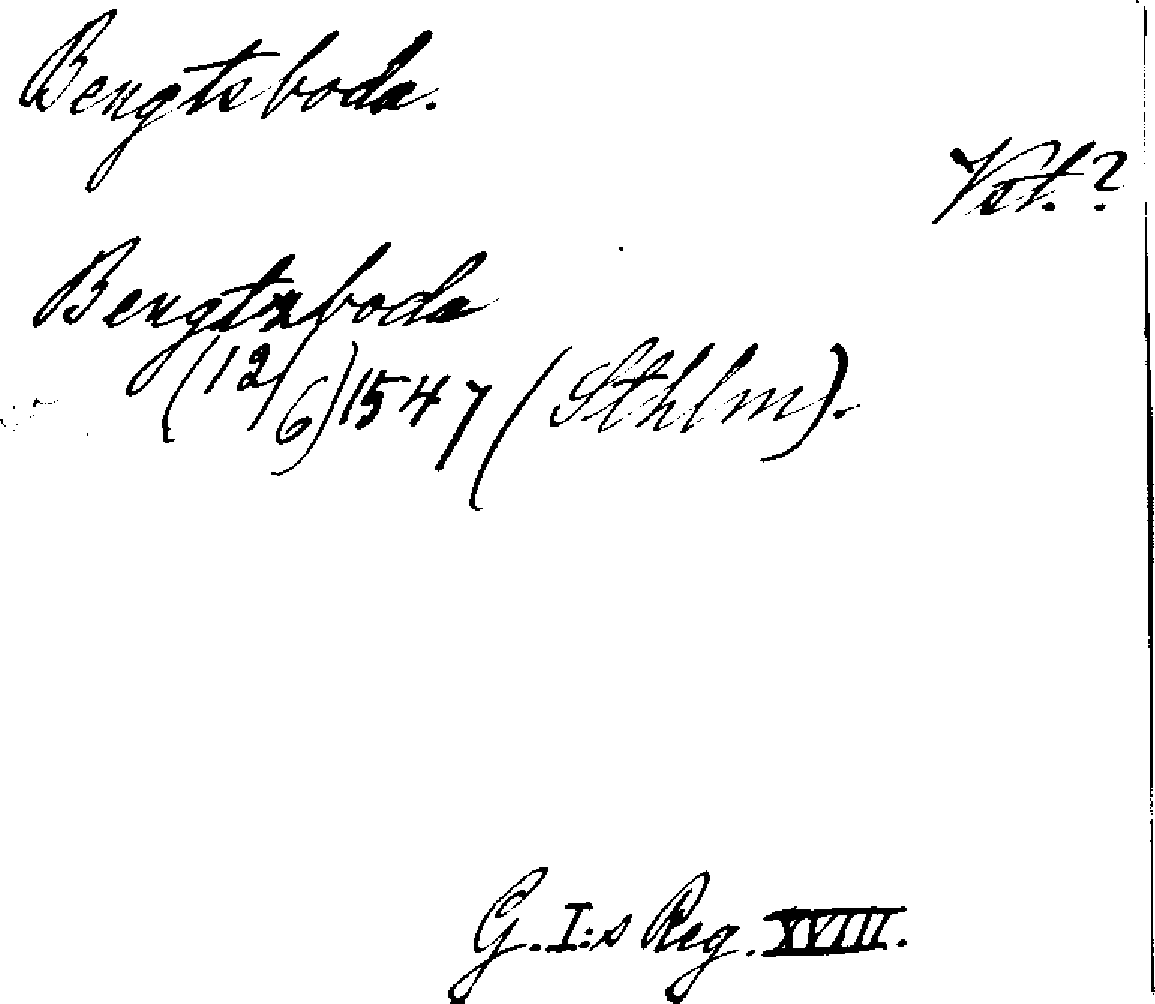 Bengtsboda.
Vst.?
Bengtzboda
(12/6) 1547 (Sthlm).
G. I:s Reg. XVIII.